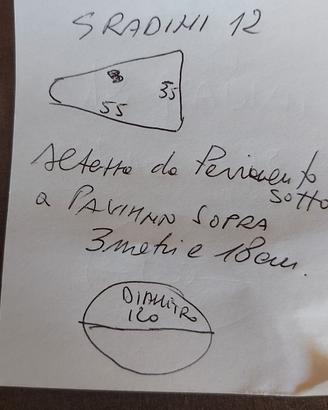 GRADINI 12
55
35
Altezza da Pavimento
sotto
a PAVIMNN SOPRA
3 metri e 18 cm.
DIAMETRO
120